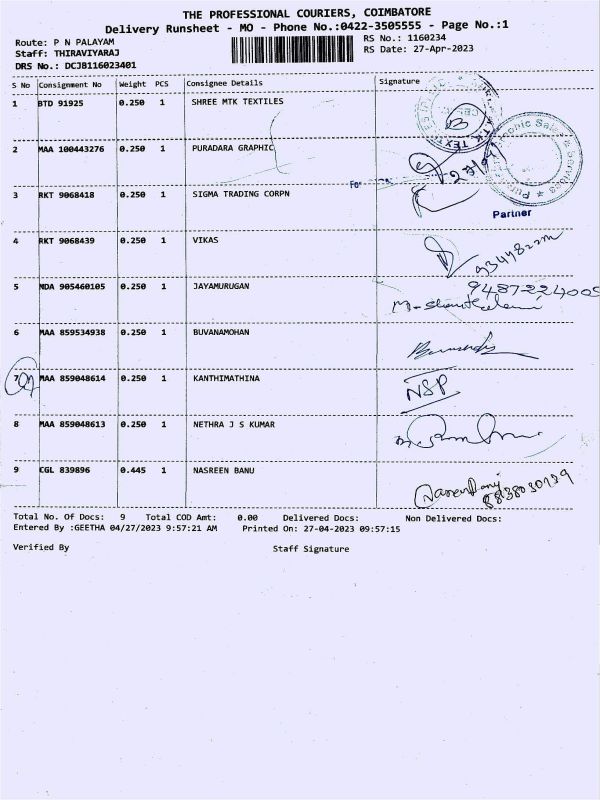 THE PROFESSIONAL COURIERS, COIMBATORE
Delivery Runsheet - MO - Phone No.:0422-3505555 - Page No.:1
Route: P N PALAYAM RS No.: 1160234
Staff: THIRAVIYARAJ RS Date: 27-Apr-2023
DRS No.: DCJB116023401
S No Consignment No Weight PCS Consignee Details Signature
1 BTD 91925 0.250 1 SHREE MTK TEXTILES
2 MAA 100443276 0.250 1 PURADARA GRAPHIC
For
3 RKT 9068418 0.250 1 SIGMA TRADING CORPN
Partner
4 RKT 9068439 0.250 1 VIKAS
5 NDA 905460105 0.250 1 JAYAMURUGAN 9487224005
6 MAA 859534938 0.250 1 BUVANAMOHAN
7 MAA 859048614 0.250 1 KANTHIMATHINA NSP
8 MAA 859048613 0.250 1 NETHRA J S KUMAR
9 CGL 839896 0.445 1 NASREEN BANU
Total No. Of Docs: 9 Total COD Amt: 0.00 Delivered Docs: Non Delivered Docs:
Entered By :GEETHA 04/27/2023 9:57:21 AM Printed On: 27-04-2023 09:57:15
Verified By Staff Signature